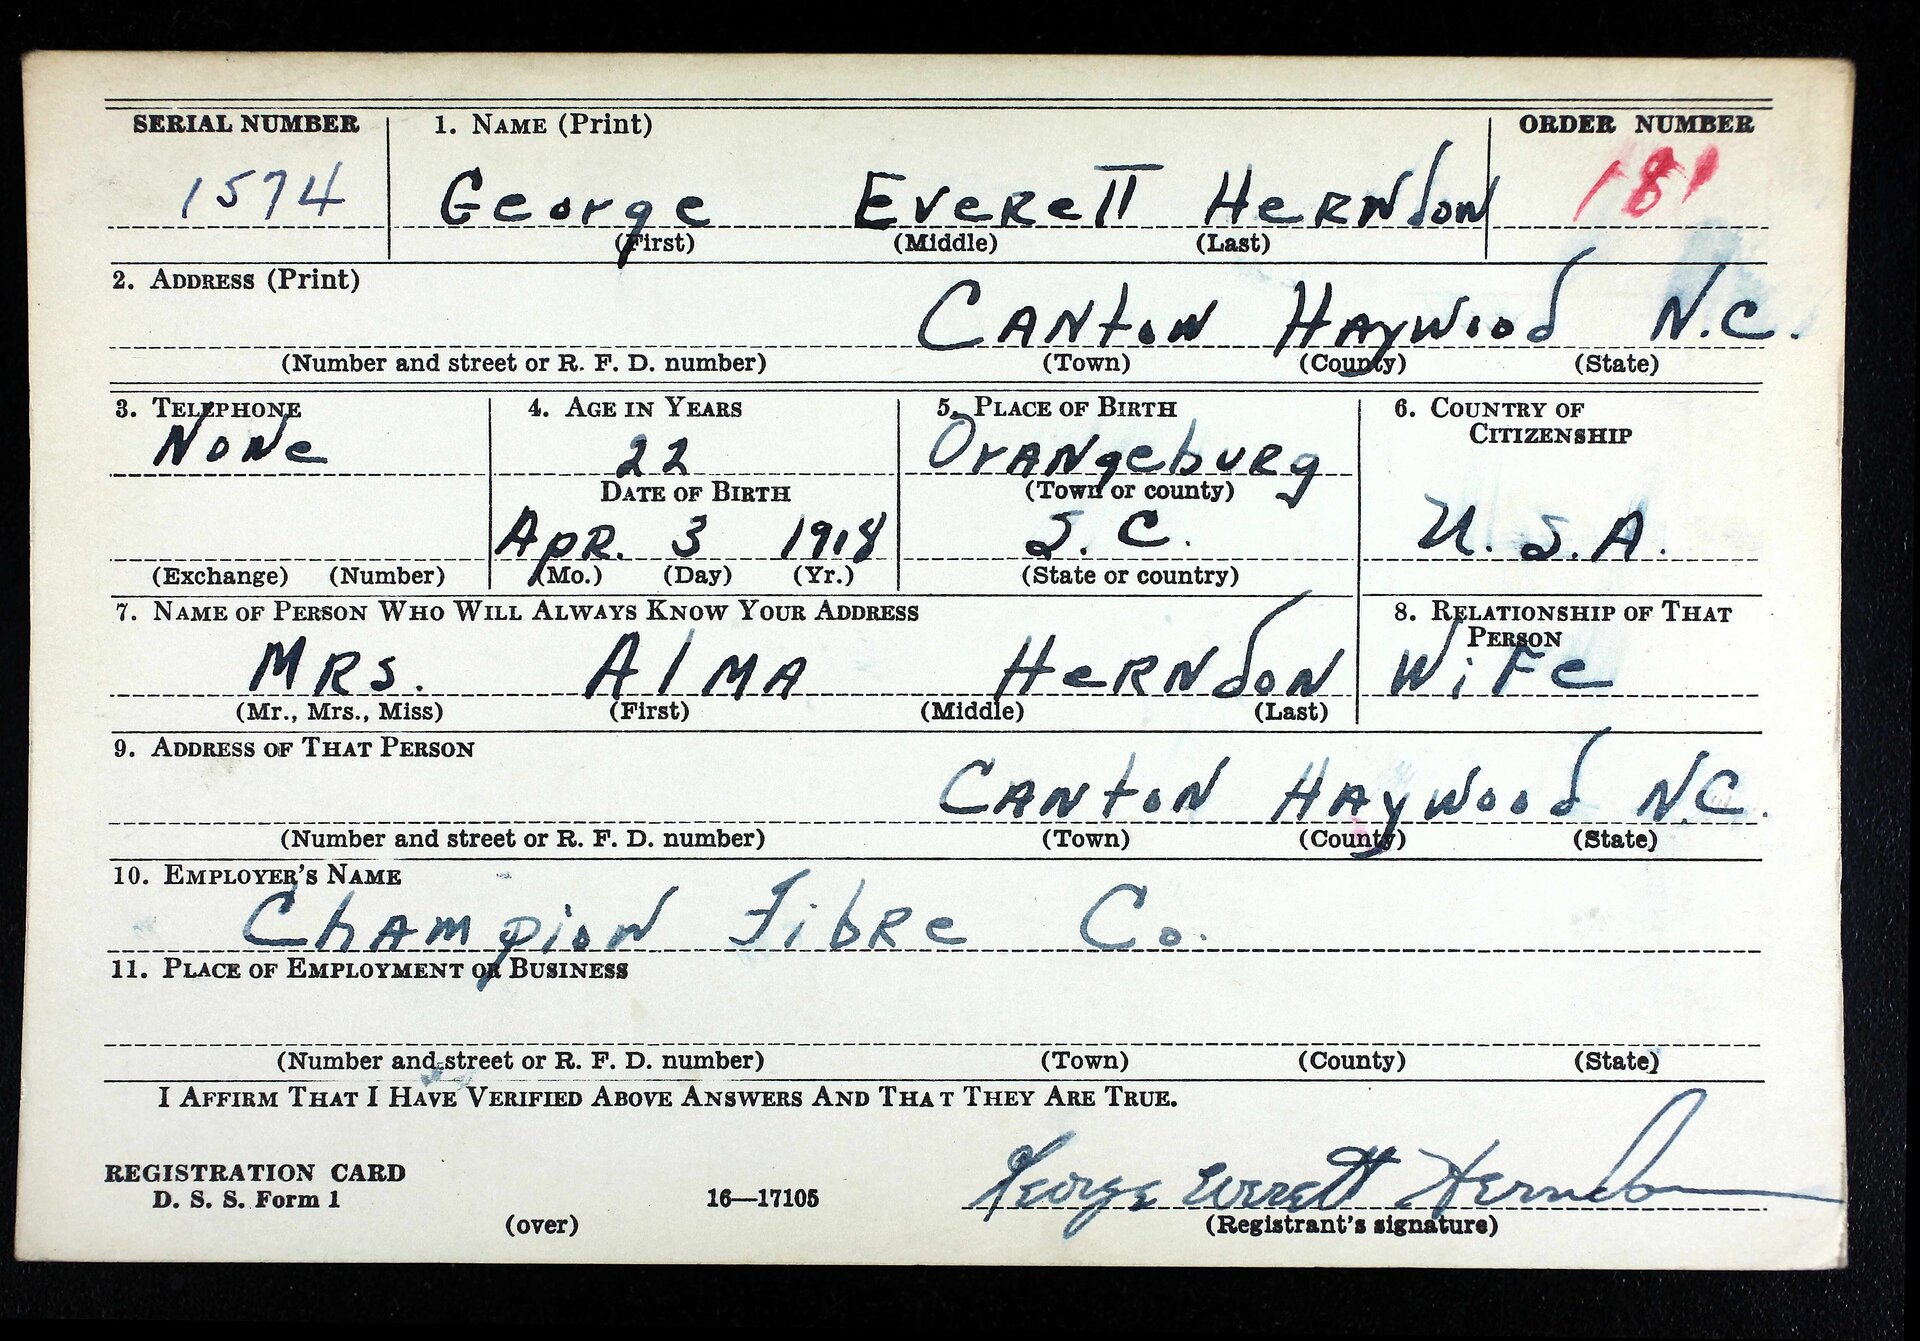 SERIAL NUMBER 1. NAME (Print) ORDER NUMBER
1574 George Everett Herndon 181
(First) (Middle) (Last)
2. ADDRESS (Print)
Canton Haywood N.C.
(Number and street or R. F. D. number) (Town) (County) (State)
3. TELEPHONE 4. AGE IN YEARS 5. PLACE OF BIRTH 6. COUNTRY OF CITIZENSHIP
None 22 Orangeburg
DATE OF BIRTH (Town or county)
Apr. 3 1918 S. C. U. S. A.
(Exchange) (Number) (Mo.) (Day) (Yr.) (State or country)
7. NAME OF PERSON WHO WILL ALWAYS KNOW YOUR ADDRESS 8. RELATIONSHIP OF THAT PERSON
Mrs. Alma Herndon Wife
(Mr., Mrs., Miss) (First) (Middle) (Last)
9. ADDRESS OF THAT PERSON
Canton Haywood N.C.
(Number and street or R. F. D. number) (Town) (County) (State)
10. EMPLOYER'S NAME
Champion Fibre Co.
11. PLACE OF EMPLOYMENT OR BUSINESS
(Number and street or R. F. D. number) (Town) (County) (State)
I AFFIRM THAT I HAVE VERIFIED ABOVE ANSWERS AND THAT THEY ARE TRUE.
George Everett Herndon
REGISTRATION CARD
D. S. S. Form 1 16—17105
(over) (Registrant's signature)